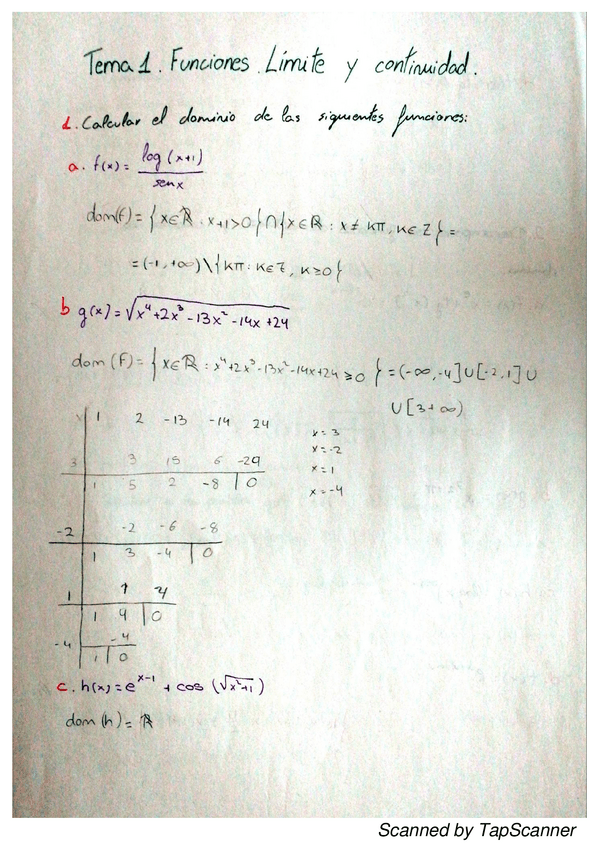 Tema 1. Funciones. Límite y continuidad.
1. Calcular el dominio de las siguientes funciones:
a. f(x) = log (x+1) / sen x
dom(f) = { x∈ℝ : x+1>0 } ∩ { x∈ℝ : x ≠ kπ, k∈ℤ } =
= (-1, +∞) \ { kπ : k∈ℤ, k≥0 }
b g(x) = √(x⁴+2x³-13x²-14x+24)
dom (F) = { x∈ℝ : x⁴+2x³-13x²-14x+24 ≥0 } = (-∞, -4] ∪ [-2, 1] ∪
∪ [3 +∞)
1 2 -13 -14 24
3 3 15 6 -24
1 5 2 -8 | 0
-2 -2 -6 -8
1 3 -4 | 0
1 1 4
1 4 | 0
-4 -4
1 | 0
x = 3
x = -2
x = 1
x = -4
c. h(x) = e^(x-1) + cos (√(x²+1))
dom (h) = ℝ
Scanned by TapScanner